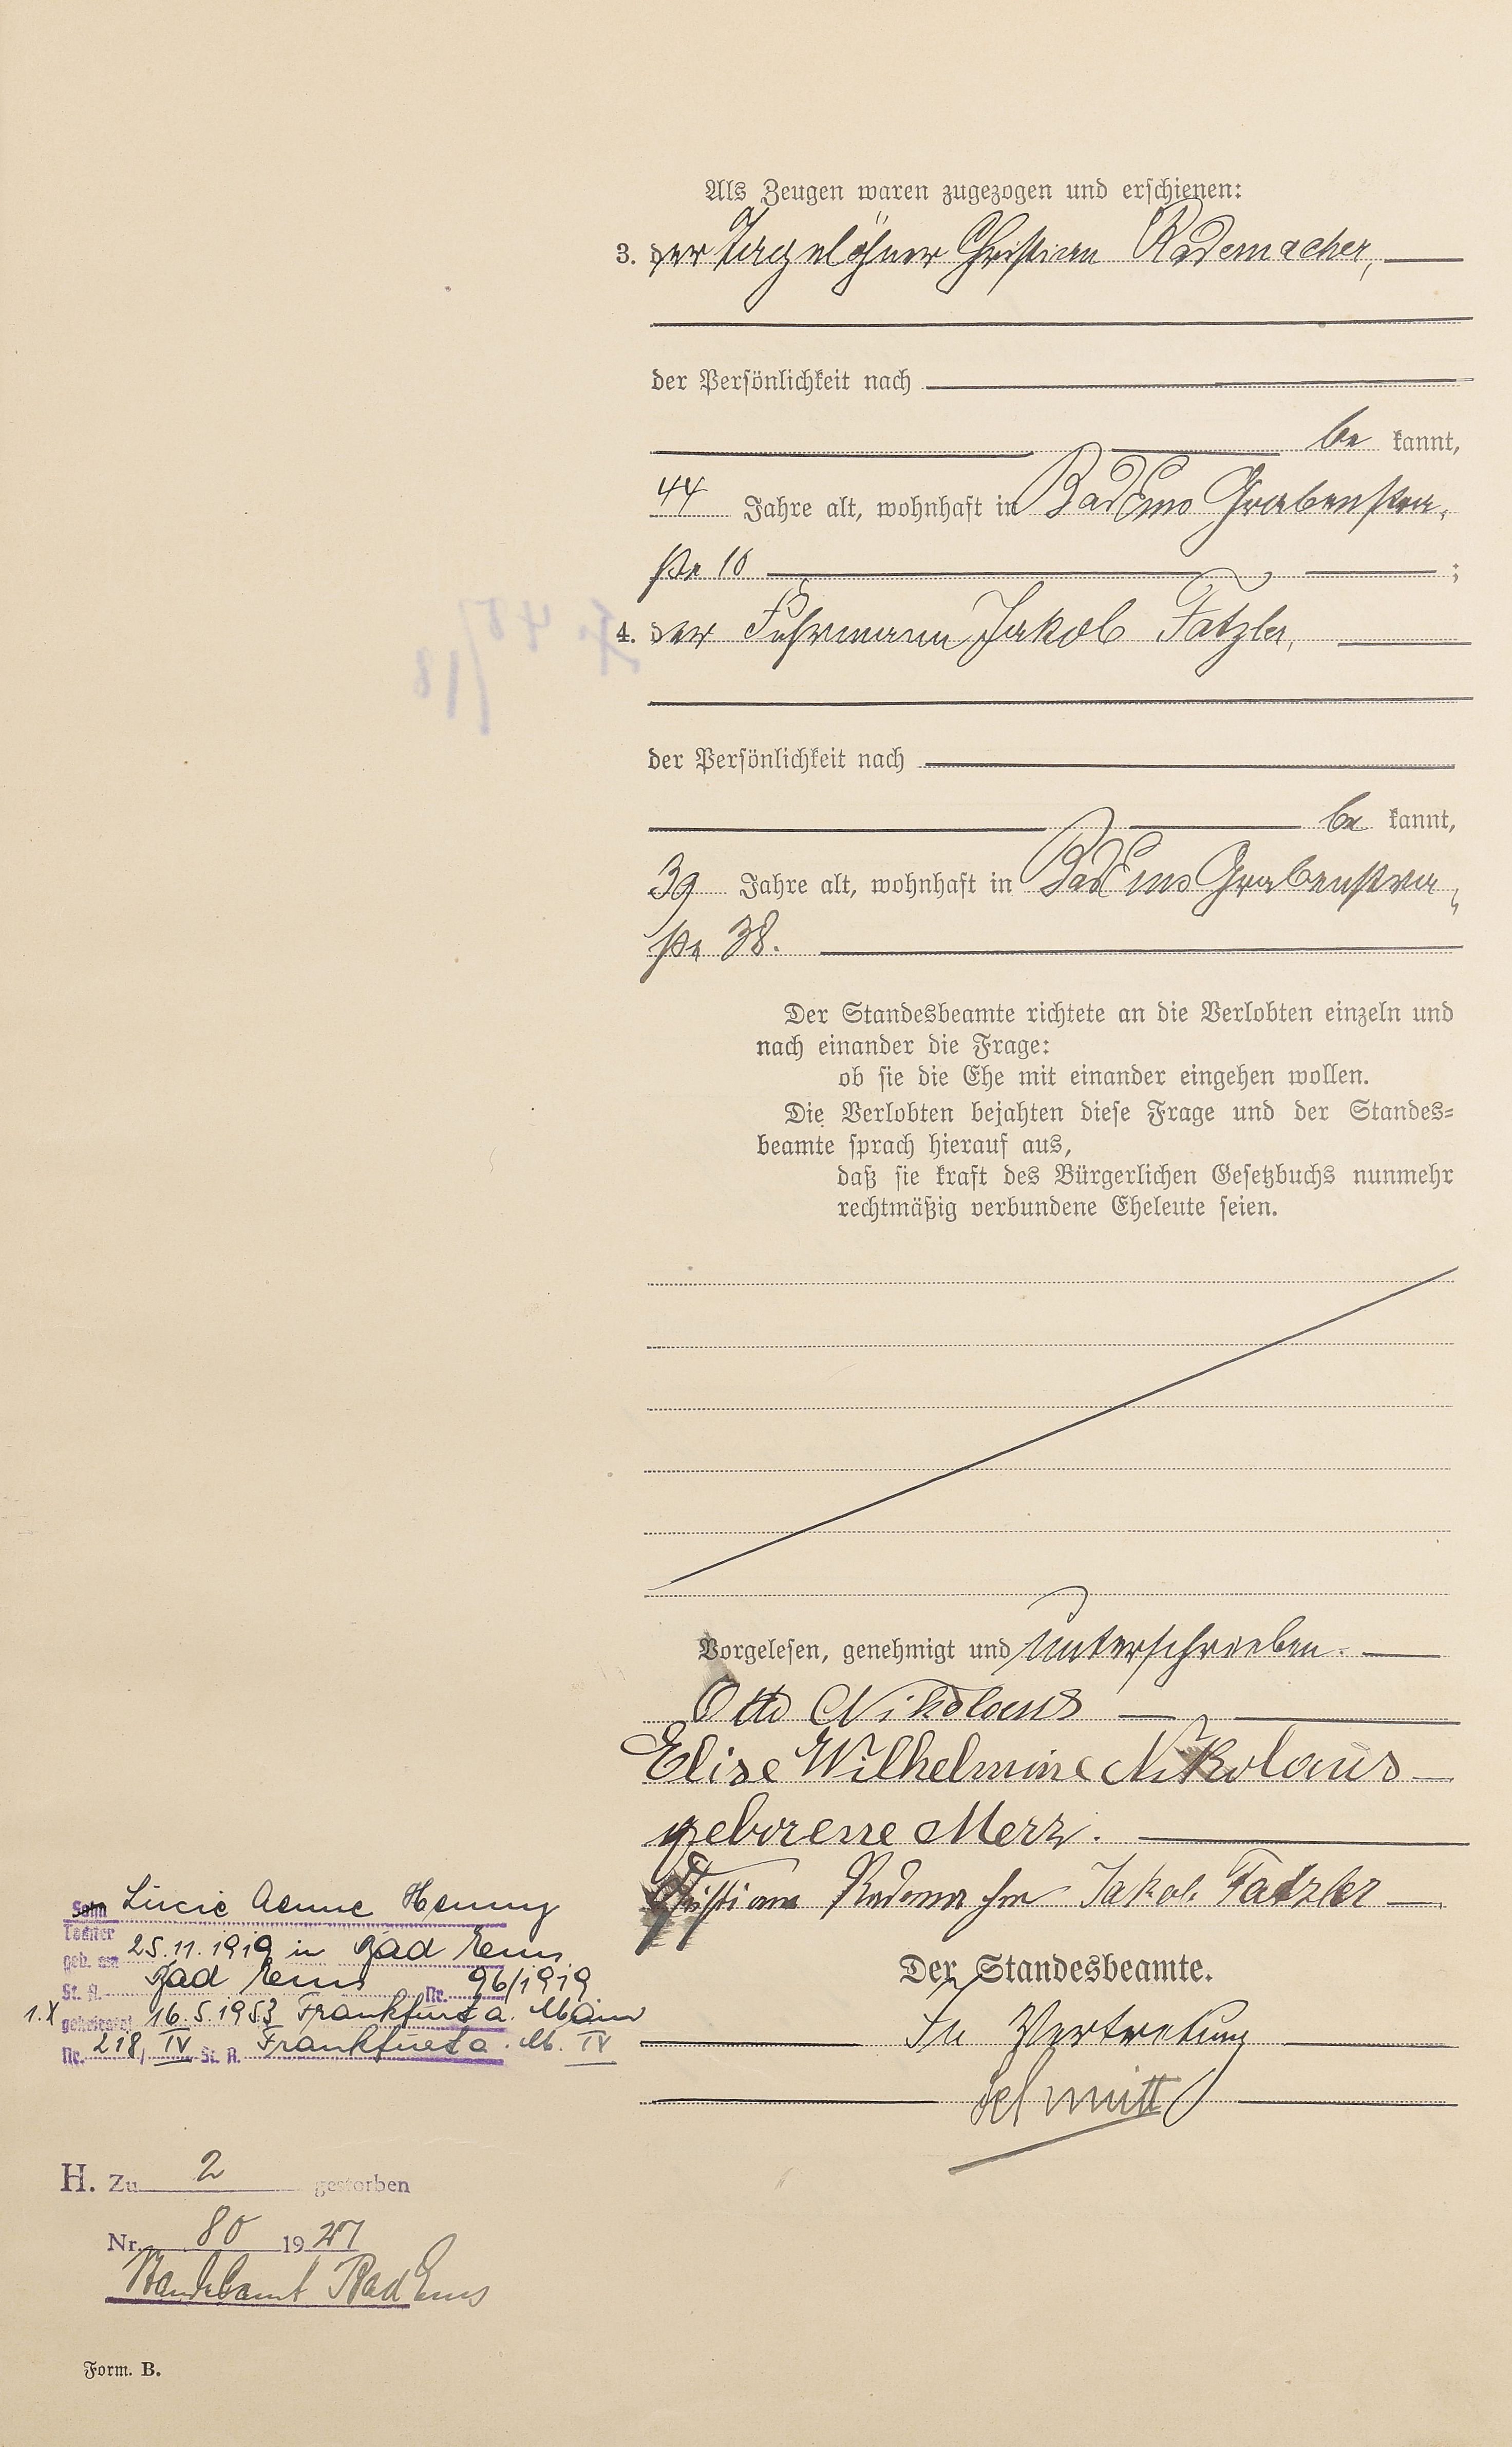 Als Zeugen waren zugezogen und erschienen:
3. der Tagelöhner Christian Rademacher,
der Persönlichkeit nach
be kannt,
44 Jahre alt, wohnhaft in Bad Ems Grabenstra-
ße 10 ;
4. der Fuhrmann Jakob Fatzler,
der Persönlichkeit nach
be kannt,
39 Jahre alt, wohnhaft in Bad Ems Grabenstra-
ße 38.
Der Standesbeamte richtete an die Verlobten einzeln und
nach einander die Frage:
ob sie die Ehe mit einander eingehen wollen.
Die Verlobten bejahten diese Frage und der Standes=
beamte sprach hierauf aus,
daß sie kraft des Bürgerlichen Gesetzbuchs nunmehr
rechtmäßig verbundene Eheleute seien.
Vorgelesen, genehmigt und unterschrieben.
Otto Nikolaus
Elise Wilhelmine Nikolaus
geborene Merz.
Christian Rademacher Jakob Fatzler
Der Standesbeamte.
In Vertretung
Schmitt
Sohn Lucie Aenne Henny
Tochter
geb. am 25.11.1919 in Bad Ems
St. A. Bad Ems Nr. 96/1919
1.X geheiratet 16.5.1953 Frankfurt a. Main
Nr. 218, IV St. A. Frankfurt a. M. IV
H. Zu 2 gestorben
Nr. 80 1927
Standesamt Bad Ems
Form. B.